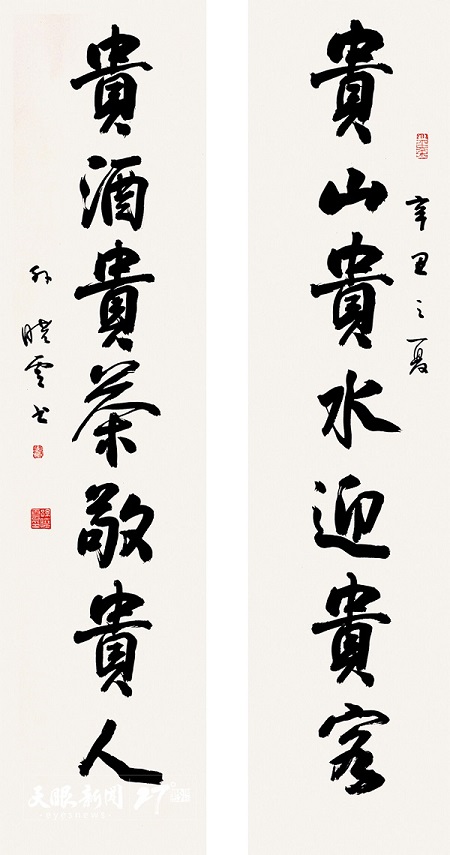 貴山貴水迎貴客
辛丑之夏
貴酒貴茶敬貴人
孙曉雲书
天眼新闻
eyesnews